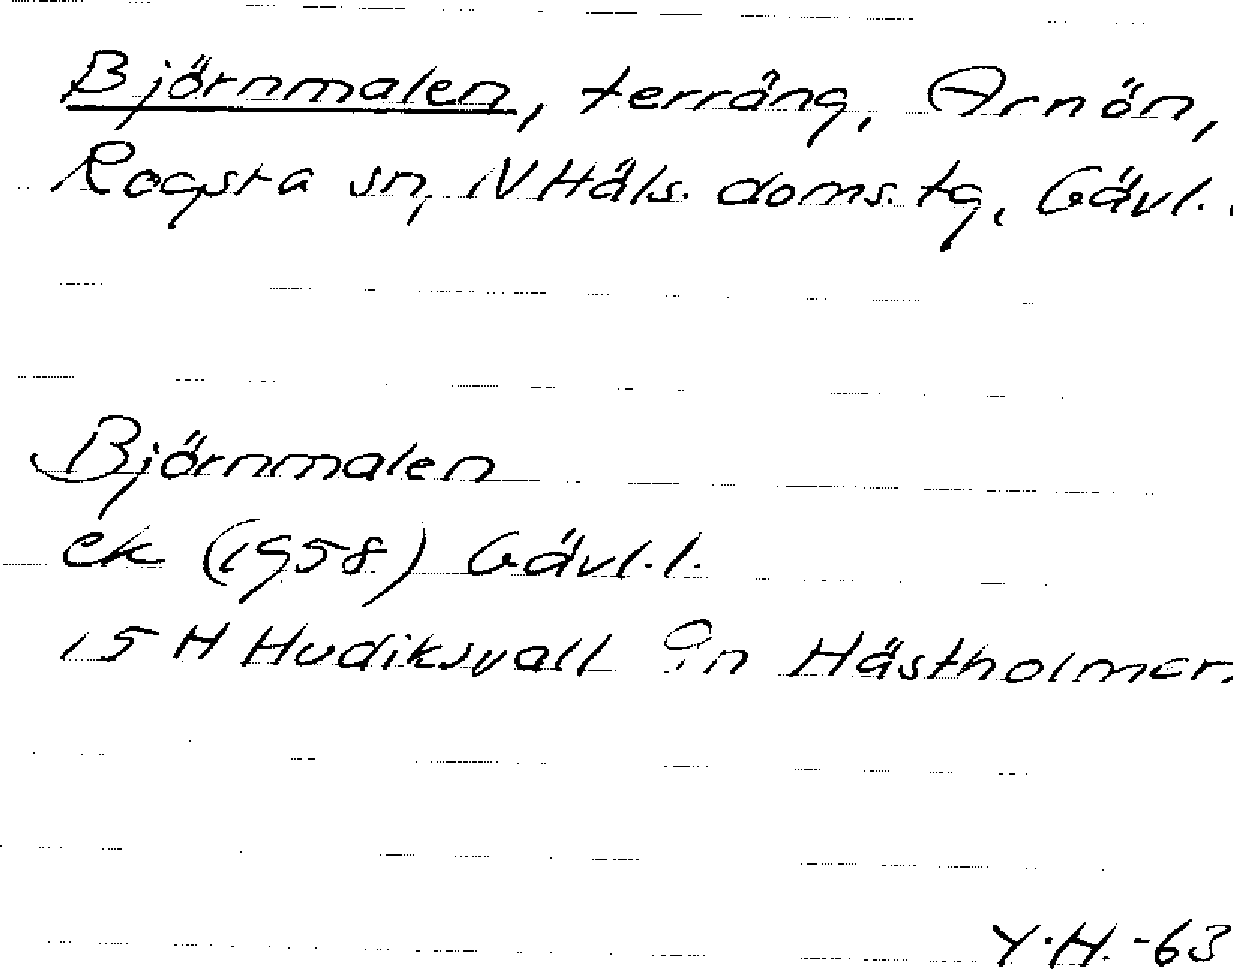 Björnmalen, terräng, Arnön,
Rogsta sn, N Häls. doms. tg, Gävl. l.
Björnmalen
ek (1958) Gävl. l.
15 H Hudiksvall Ön Hästholmen
Y.H. -63